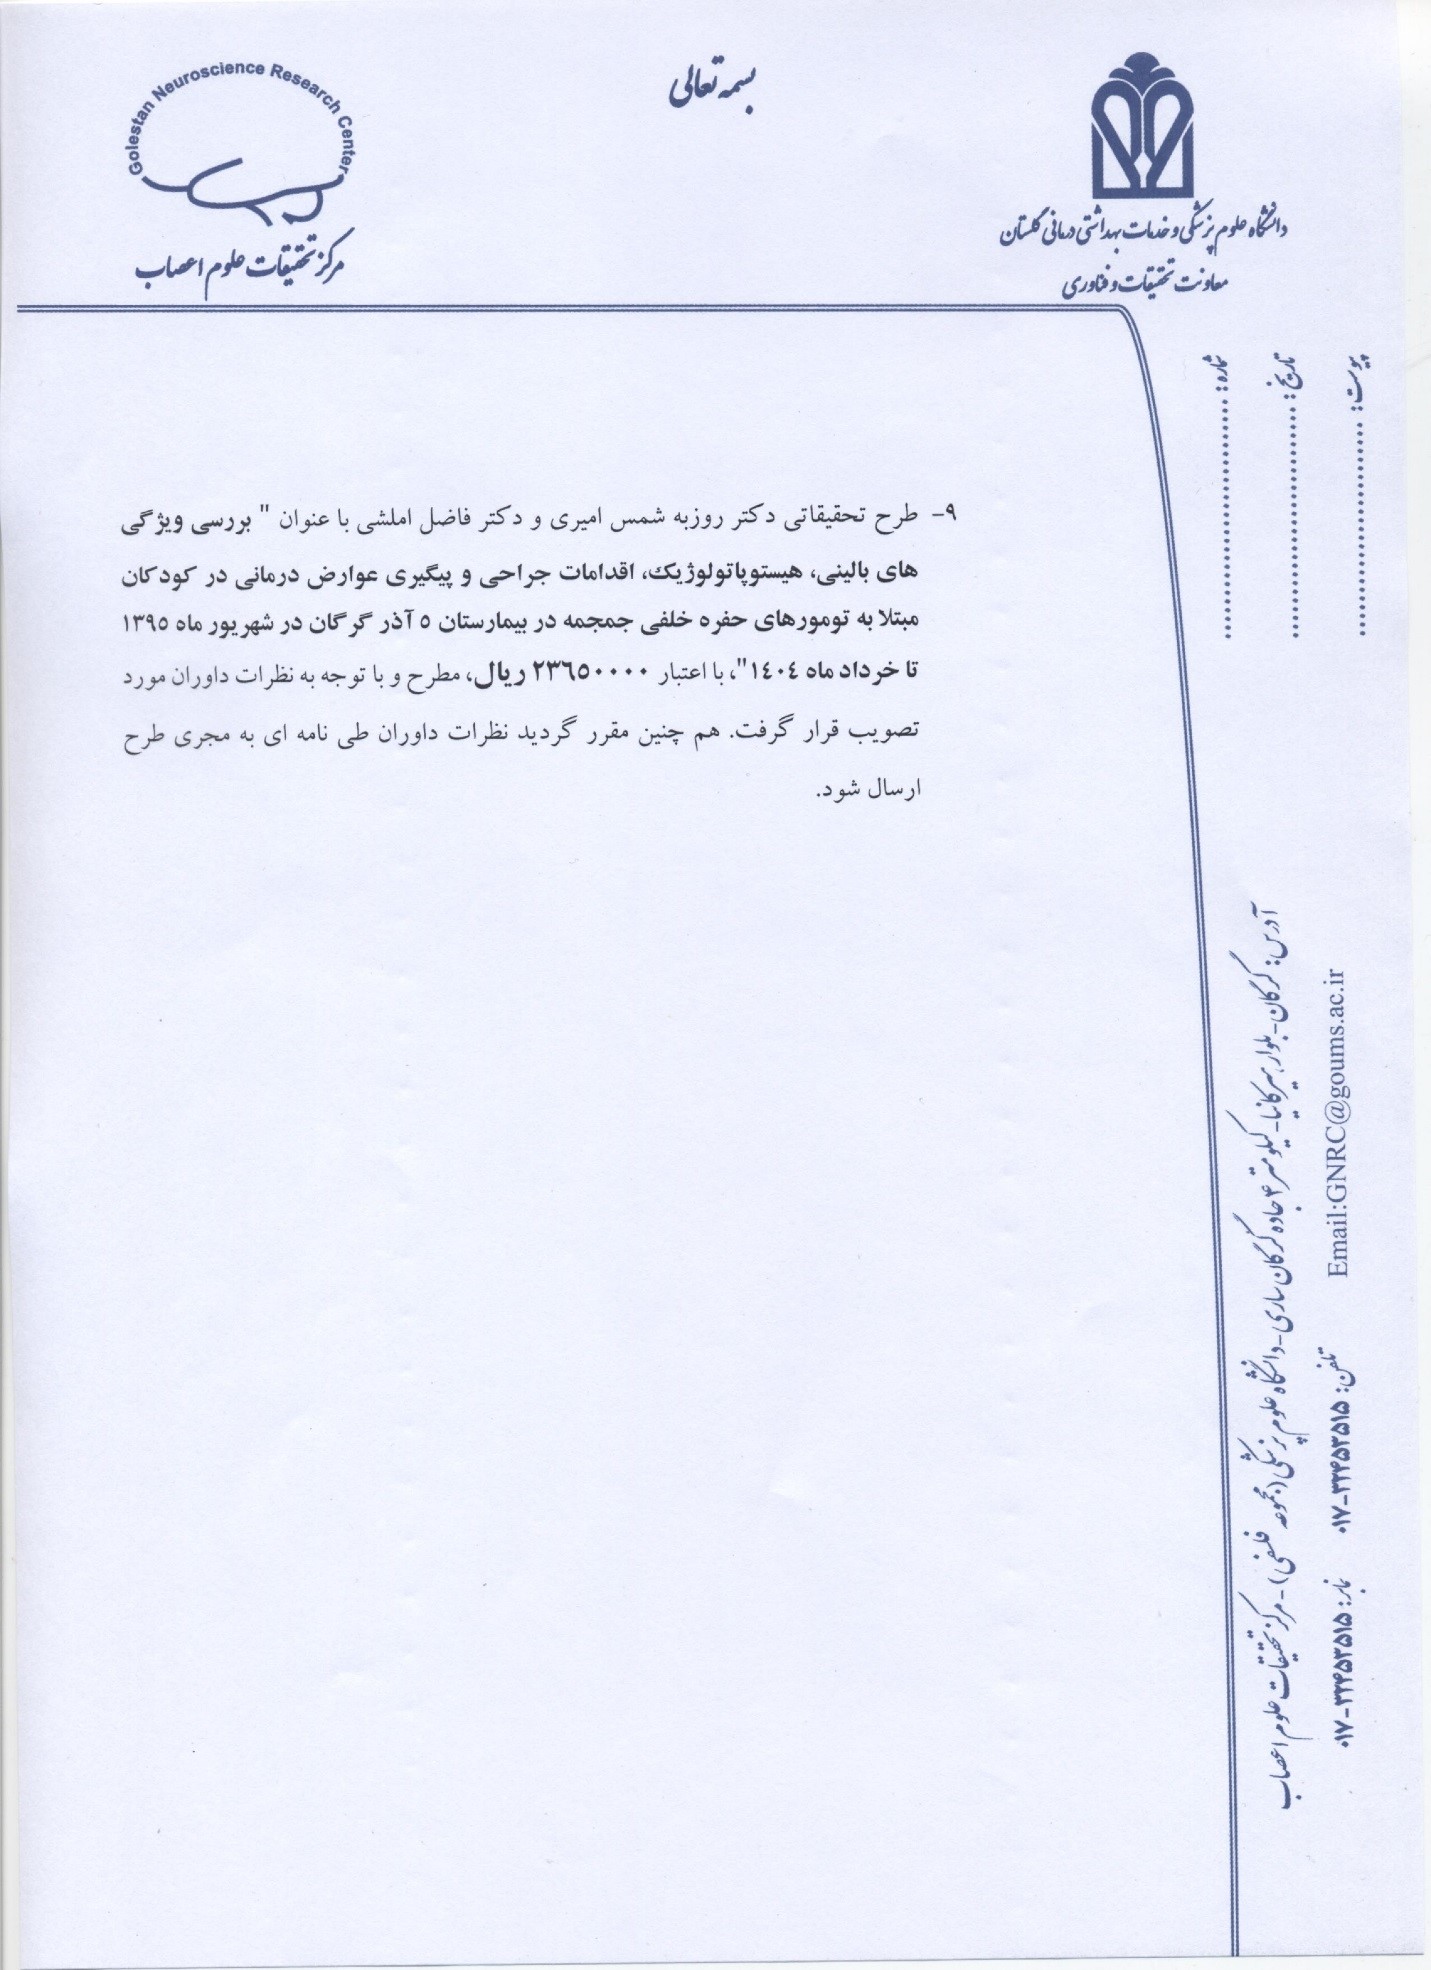 بسمه تعالی
Golestan Neuroscience Research Center
مرکز تحقیقات علوم اعصاب
دانشگاه علوم پزشکی و خدمات بهداشتی درمانی گلستان
معاونت تحقیقات و فناوری
شماره: ................................
تاریخ: ................................
پیوست: ................................
۹- طرح تحقیقاتی دکتر روزبه شمس امیری و دکتر فاضل املشی با عنوان " بررسی ویژگی
های بالینی، هیستوپاتولوژیک، اقدامات جراحی و پیگیری عوارض درمانی در کودکان
مبتلا به تومورهای حفره خلفی جمجمه در بیمارستان ٥ آذر گرگان در شهریور ماه ۱۳۹٥
تا خرداد ماه ۱٤۰٤"، با اعتبار ۲۳٦٥۰۰۰۰ ریال، مطرح و با توجه به نظرات داوران مورد
تصویب قرار گرفت. هم چنین مقرر گردید نظرات داوران طی نامه ای به مجری طرح
ارسال شود.
آدرس: گرگان-بلوار هیرکانیا-کیلومتر ۴ جاده گرگان ساری-دانشگاه علوم پزشکی (مجموعه فلسفی)-مرکز تحقیقات علوم اعصاب
Email:GNRC@goums.ac.ir
تلفن: ۰۱۷-۳۲۴۵۳۵۱۵
نمابر: ۰۱۷-۳۲۴۵۳۵۱۵